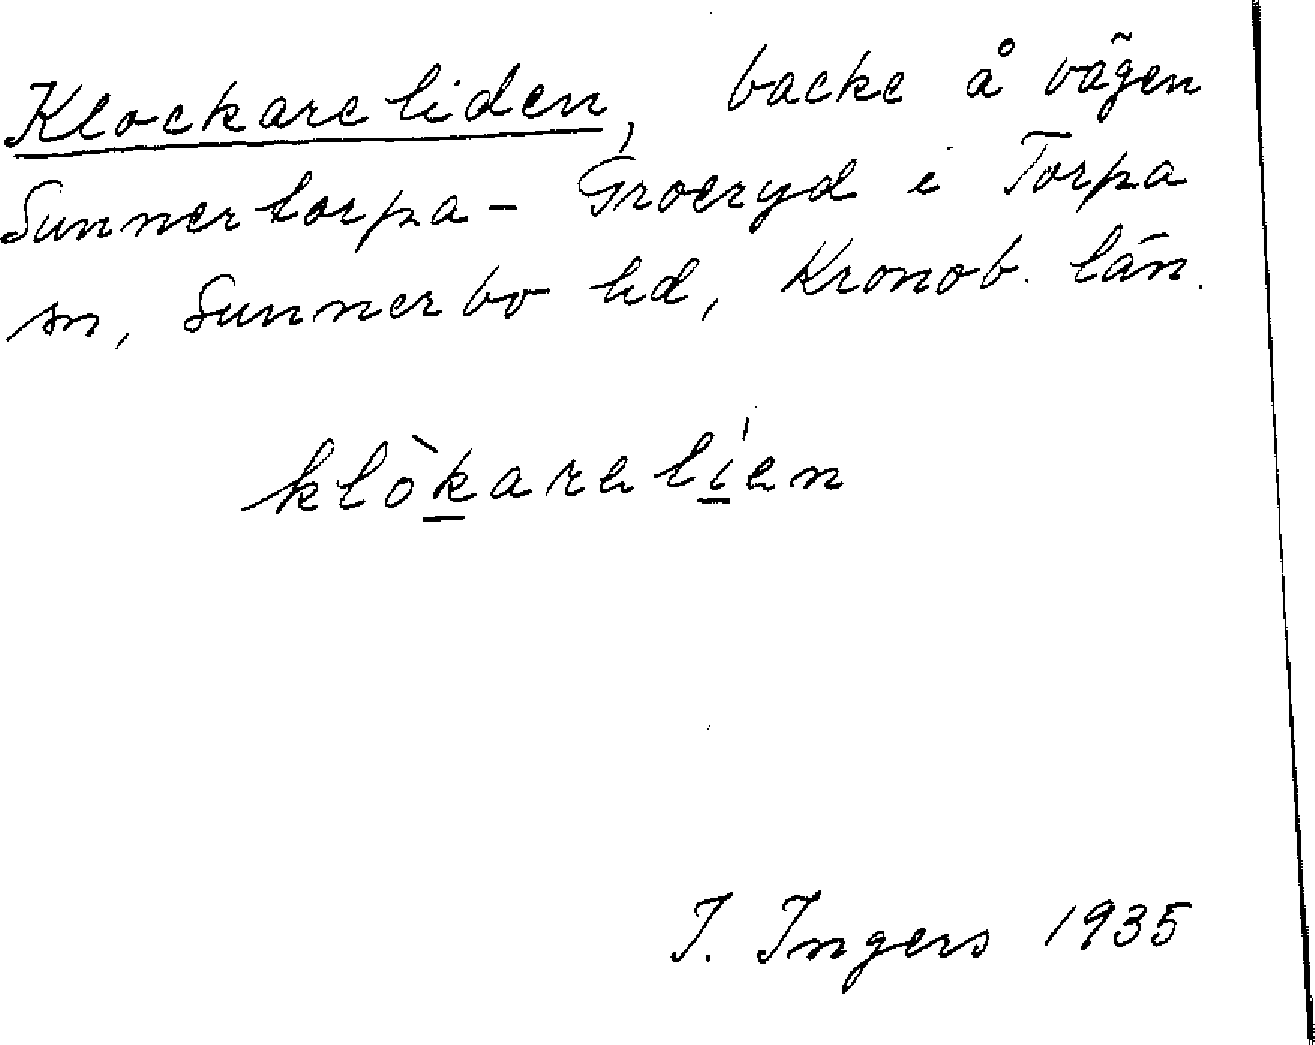 Klockareliden, backe å vägen
Sunnertorpa - Groeryd i Torpa
sn, Sunnerbo hd, Kronob. län.
klòkarelíen
I. Ingers 1935